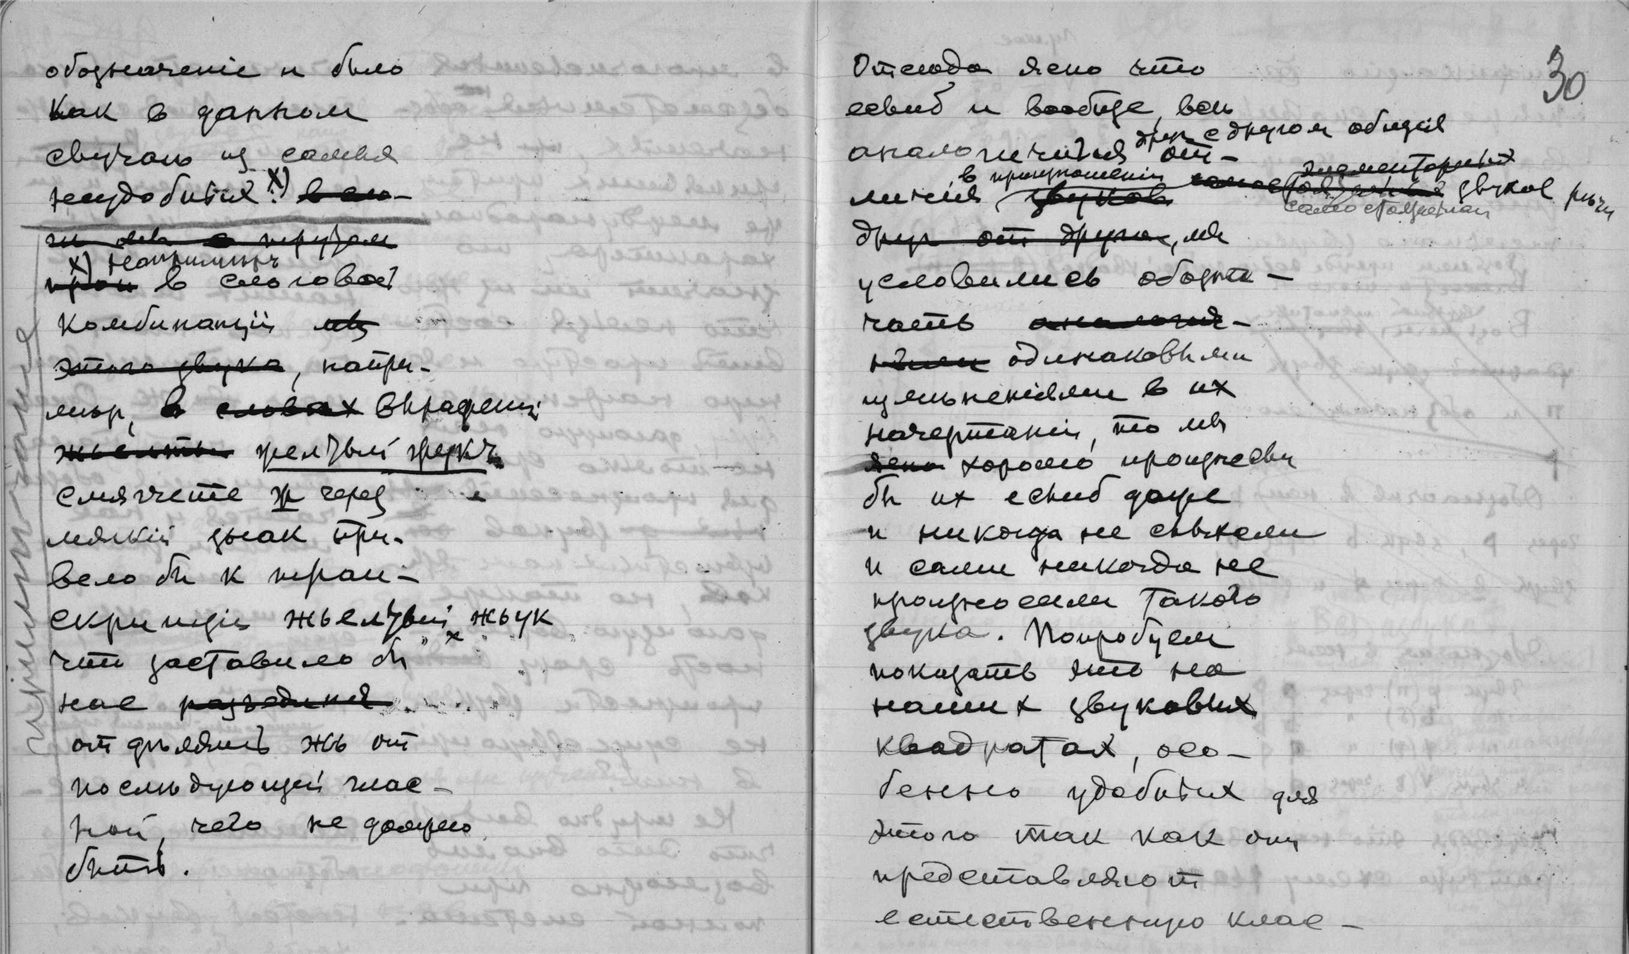 обозначеніе и было
как в данном
случаѣ из самых
неудобных x)
x) Например
в слоговой
комбинаціи
этого звука, напри-
мѣр, в словах выражени
желтый жук
смягчете ж через
мягкій знак при-
вело бы к тран-
скрипціи жьелтый жьук
что заставило бы
нас разъедин
отдѣлять жь от
послѣдующей глас-
ной, чего не должно
быть.
примѣчание
30
Отсюда ясно что
если б и вообще, всѣ
друг с другом общія
аналогичныя от-
в произношеніи элементарных
личія звуков звуков рѣчи
друг от друга, мы
условились обозна-
чать аналогич-
ными одинаковыми
измѣненіями в их
начертаніи, то мы
ясно хорошо произнесли
бы их если б даже
и никогда не слыхали
и сами никогда не
произносили такого
звука. Попробуем
показать это на
наших звуковых
квадратах, осо-
бенно удобных для
этого так как они
представляют
естественную клас-